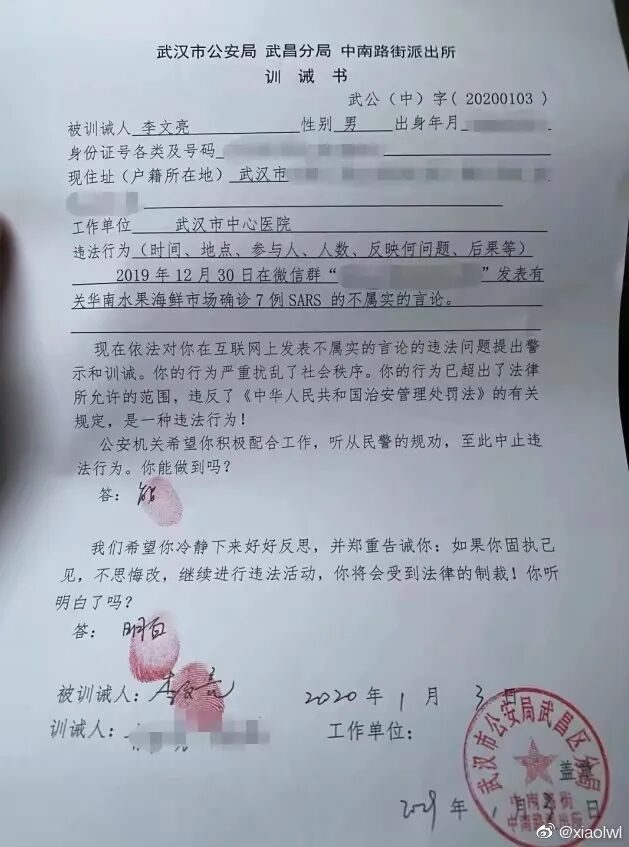 武汉市公安局 武昌分局 中南路街派出所
训 诫 书
武公（中）字（20200103）
被训诫人 李文亮 性别 男 出身年月
身份证号各类及号码
现住址（户籍所在地） 武汉市
工作单位 武汉市中心医院
违法行为（时间、地点、参与人、人数、反映何问题、后果等）
2019 年 12 月 30 日在微信群“ ”发表有
关华南水果海鲜市场确诊 7 例 SARS 的不属实的言论。
现在依法对你在互联网上发表不属实的言论的违法问题提出警
示和训诫。你的行为严重扰乱了社会秩序。你的行为已超出了法律
所允许的范围，违反了《中华人民共和国治安管理处罚法》的有关
规定，是一种违法行为！
公安机关希望你积极配合工作，听从民警的规劝，至此中止违
法行为。你能做到吗？
答： 能
我们希望你冷静下来好好反思，并郑重告诫你：如果你固执己
见，不思悔改，继续进行违法活动，你将会受到法律的制裁！你听
明白了吗？
答： 明白
被训诫人：李文亮 2020 年 1 月 3 日
训诫人： 工作单位：
武汉市公安局武昌区分局
盖章
中南路街
中南路派出所
年 月 日
@xiaolwl